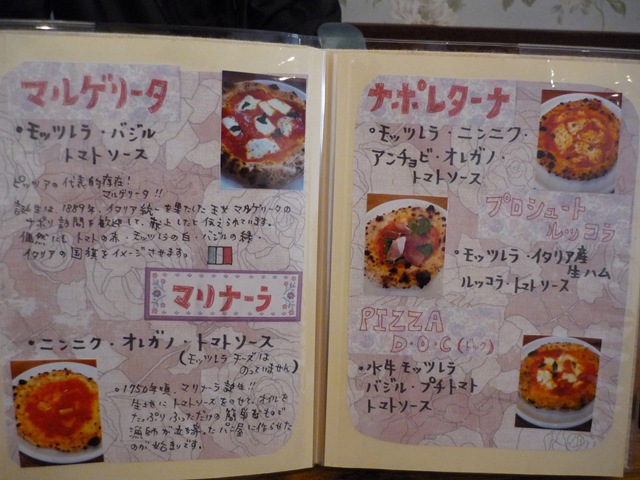 マルゲリータ
•モッツレラ・バジル
トマトソース
ピッツァの代表的存在!
マルゲリータ!!
誕生は、1889年、イタリア統一を果たした王妃マルゲリータの
ナポリ訪問を歓迎して、献上したと伝えられています。
偶然にもトマトの赤・モッツレラの白・バジルの緑・
イタリアの国旗をイメージさせます。
マリナーラ
•ニンニク・オレガノ・トマトソース
(モッツレラチーズは
のっていません)
•1750年頃、マリナーラ誕生!!
生地にトマトソースをのせて、オイルを
たっぷりふっただけの簡単なもので
漁師が立ち寄ったパン屋に作らせた
のが始まりです。
ナポレターナ
•モッツレラ・ニンニク・
アンチョビ・オレガノ・
トマトソース
プロシュート
ルッコラ
•モッツレラ・イタリア産
生ハム
ルッコラ・トマトソース
PIZZA
D・O・C(ドック)
•水牛モッツレラ
バジル・プチトマト
トマトソース